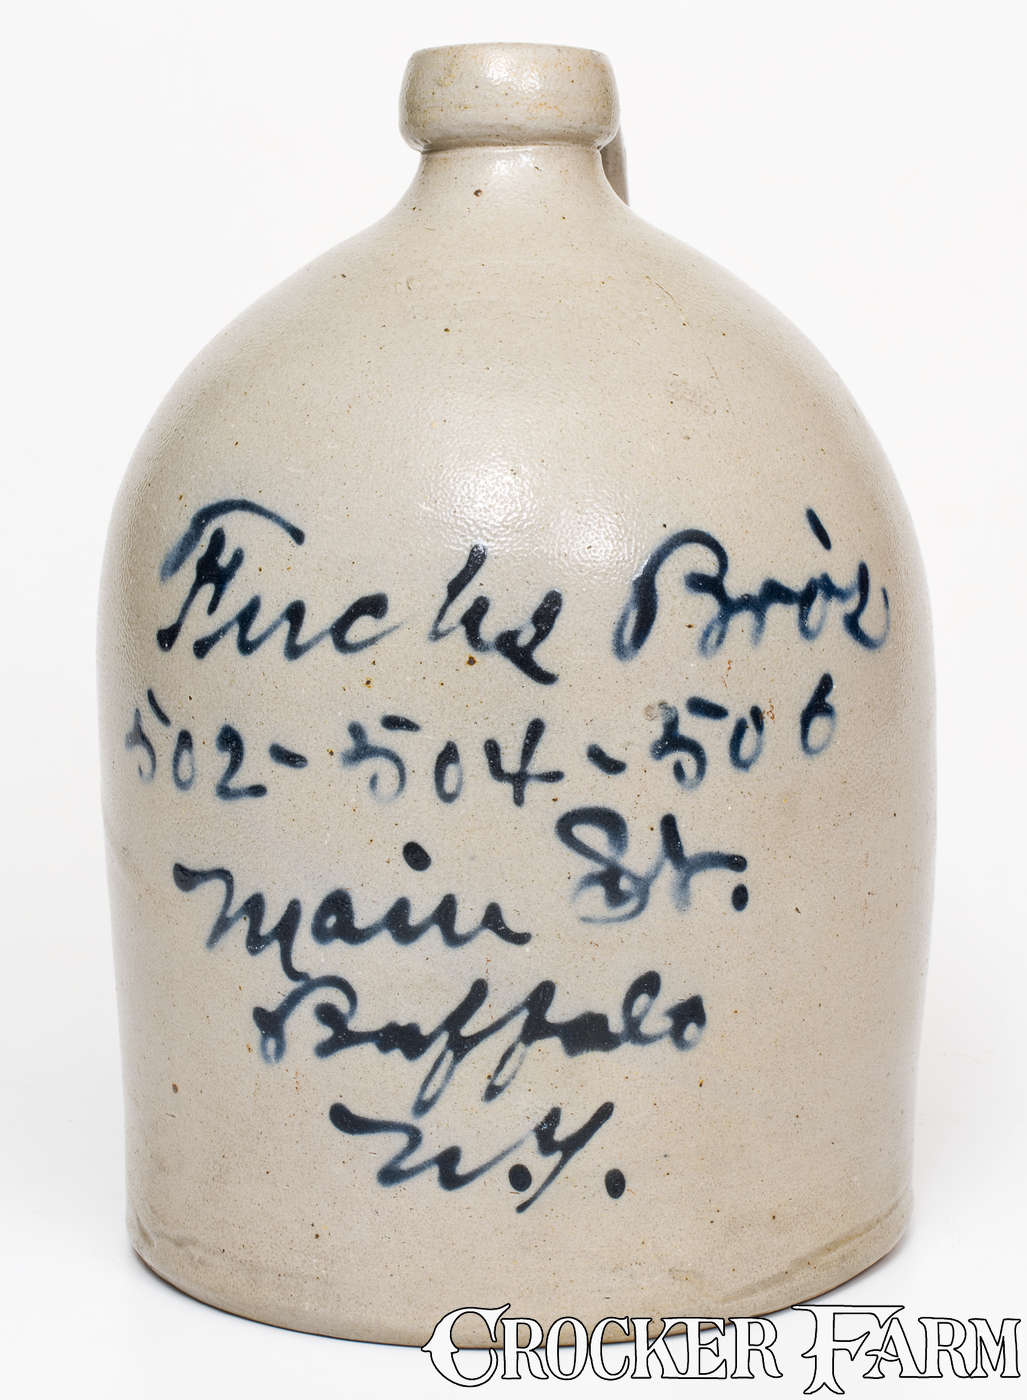 Fuchs Bro's
502-504-506
Main St.
Buffalo
N.Y.
CROCKER FARM